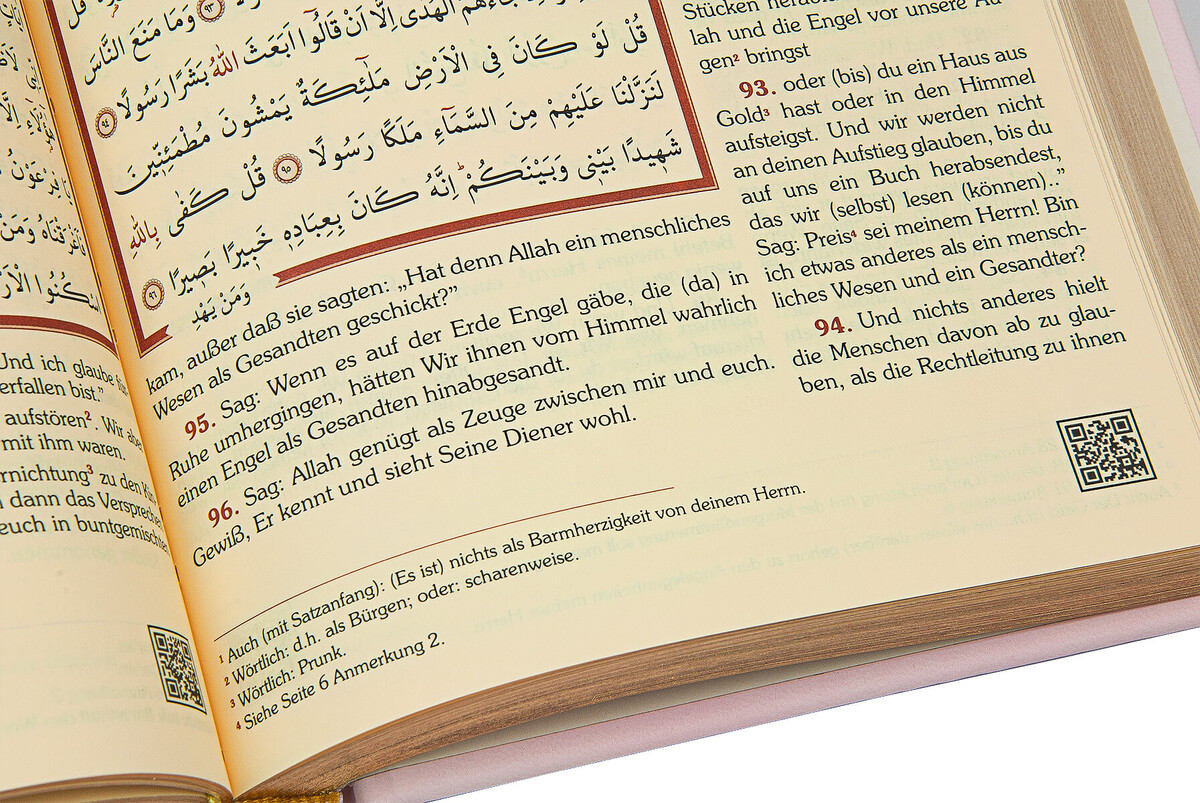 ٩٣ وَمَا مَنَعَ النَّاسَ
جَٓاءَهُمُ الْهُدٰٓى اِلَّٓا اَنْ قَالُٓوا اَبَعَثَ اللّٰهُ بَشَرًا رَسُولًا ٩٤
قُلْ لَوْ كَانَ فِي الْاَرْضِ مَلٰٓئِكَةٌ يَمْشُونَ مُطْمَئِنّ۪ينَ
لَنَزَّلْنَا عَلَيْهِمْ مِنَ السَّمَٓاءِ مَلَكًا رَسُولًا ٩٥ قُلْ كَفٰى بِاللّٰهِ
شَه۪يدًا بَيْن۪ي وَبَيْنَكُمْ اِنَّهُ كَانَ بِعِبَادِه۪ خَب۪يرًا بَص۪يرًا ٩٦
وَمَنْ يَهْدِ
Stücken
lah und die Engel vor unsere Au-
gen² bringst
93. oder (bis) du ein Haus aus
Gold³ hast oder in den Himmel
aufsteigst. Und wir werden nicht
an deinen Aufstieg glauben, bis du
auf uns ein Buch herabsendest,
das wir (selbst) lesen (können)..”
Sag: Preis⁴ sei meinem Herrn! Bin
ich etwas anderes als ein mensch-
liches Wesen und ein Gesandter?
94. Und nichts anderes hielt
die Menschen davon ab zu glau-
ben, als die Rechtleitung zu ihnen
kam, außer daß sie sagten: „Hat denn Allah ein menschliches
Wesen als Gesandten geschickt?”
95. Sag: Wenn es auf der Erde Engel gäbe, die (da) in
Ruhe umhergingen, hätten Wir ihnen vom Himmel wahrlich
einen Engel als Gesandten hinabgesandt.
96. Sag: Allah genügt als Zeuge zwischen mir und euch.
Gewiß, Er kennt und sieht Seine Diener wohl.
¹ Auch (mit Satzanfang): (Es ist) nichts als Barmherzigkeit von deinem Herrn.
² Wörtlich: d.h. als Bürgen; oder: scharenweise.
³ Wörtlich: Prunk.
⁴ Siehe Seite 6 Anmerkung 2.
Und ich glaube
erfallen bist.”
aufstören². Wir
mit ihm waren.
ernichtung³ zu den
dann das Versprechen
euch in buntgemischten